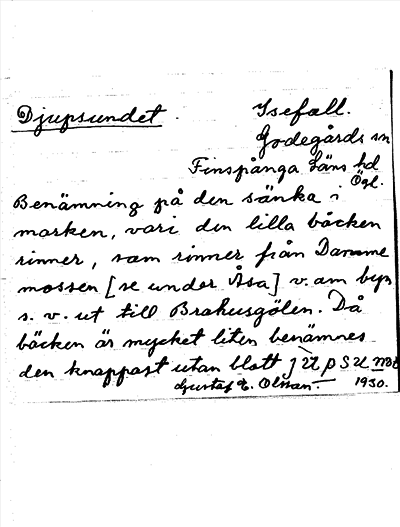 Djupsundet.
Isefall.
Godegårds sn
Finspånga läns hd
Ögl.
Benämning på den sänka i
marken, vari den lilla bäcken
rinner, som rinner från Damme
mossen [se under Åsa] v. om byn
s. v. ut till Brahusgölen. Då
bäcken är mycket liten benämnes
den knappast utan blott
Gustaf E. Olsson. 1930.